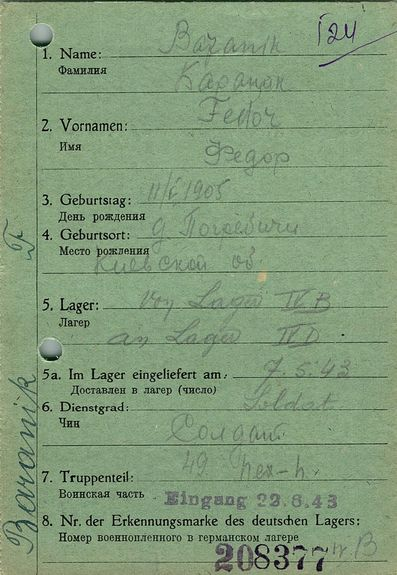 124
Bazanik
1. Name:
Фамилия
Fedor
2. Vornamen:
Имя
Федор
3. Geburtstag: 1905
День рождения
4. Geburtsort: д
Место рождения
Киевской об
5. Lager: von Lager IV B
Лагер
an Lager IV D
5a. Im Lager eingeliefert am: 7.5.43
Доставлен в лагер (число)
6. Dienstgrad: Soldat
Чин
Солдат
49
7. Truppenteil:
Воинская часть Eingang 22.6.43
8. Nr. der Erkennungsmarke des deutschen Lagers:
Номер военнопленного в германском лагере
208377 IV B
Baranik F